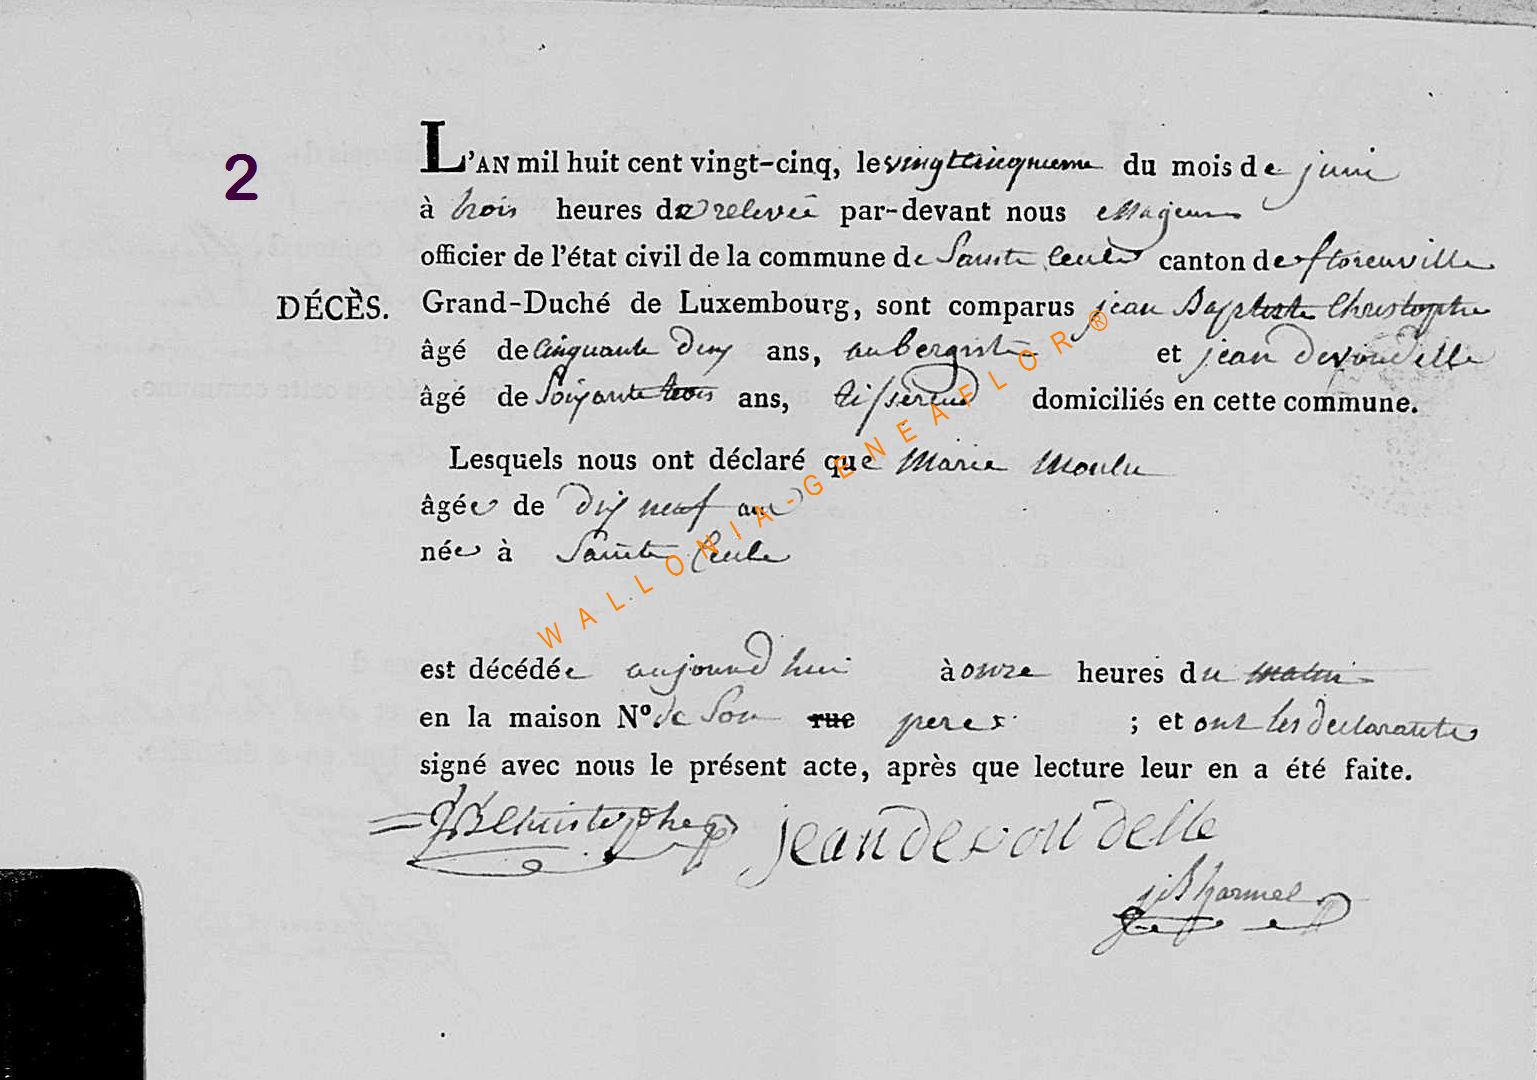 2
L'AN mil huit cent vingt-cinq, le vingt cinquieme du mois de juin
à trois heures de relevée par-devant nous Mayeur
officier de l'état civil de la commune de Sainte Cecile canton de florenville
DÉCÈS. Grand-Duché de Luxembourg, sont comparus jean Baptiste Christophe
âgé de cinquante deux ans, aubergiste et jean devoudelle
âgé de Soixante trois ans, tisserend domiciliés en cette commune.
Lesquels nous ont déclaré que Marie Moulu
âgée de dix neuf ans
née à Sainte Cecile
est décédée aujourd hui à onze heures du matin
en la maison Nº. de Son rue pere ; et ont les declarants
signé avec nous le présent acte, après que lecture leur en a été faite.
JB Christophe jean devoudelle
WALLONIA-GENEAFLOR®